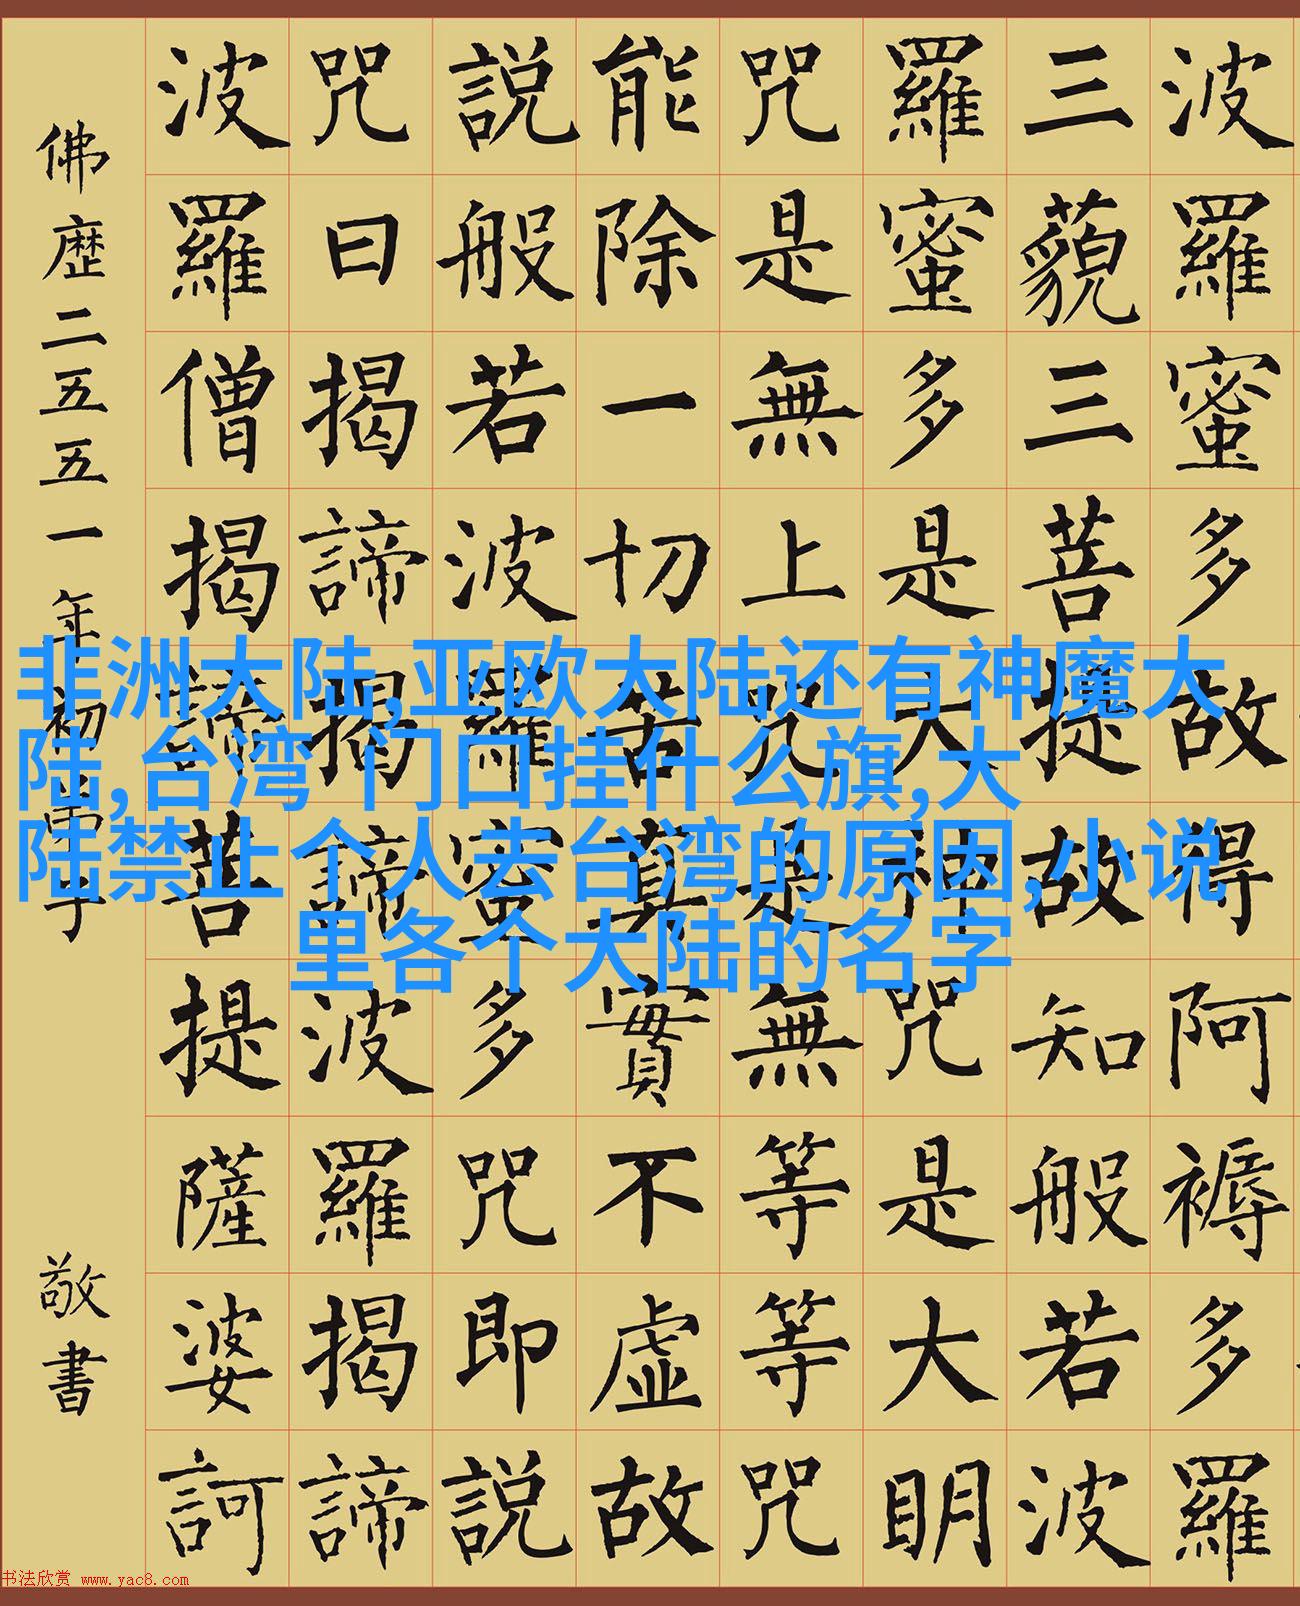 波羅蜜多故得阿褥多羅
三藐三菩提故知般若波
羅蜜多是大神咒是大明
咒是無上咒是無等等咒
能除一切苦真實不虛故
説般若波羅蜜多咒即説
咒曰揭諦揭諦波羅揭諦
波羅僧揭諦菩提薩婆訶
佛歴二五五一年初于
敬書
非洲大陆,亚欧大陆还有神魔大
陆,台湾 门口挂什么旗,大
陆禁止个人去台湾的原因,小说
里各个大陆的名字
书法欣赏 www.yac8.com